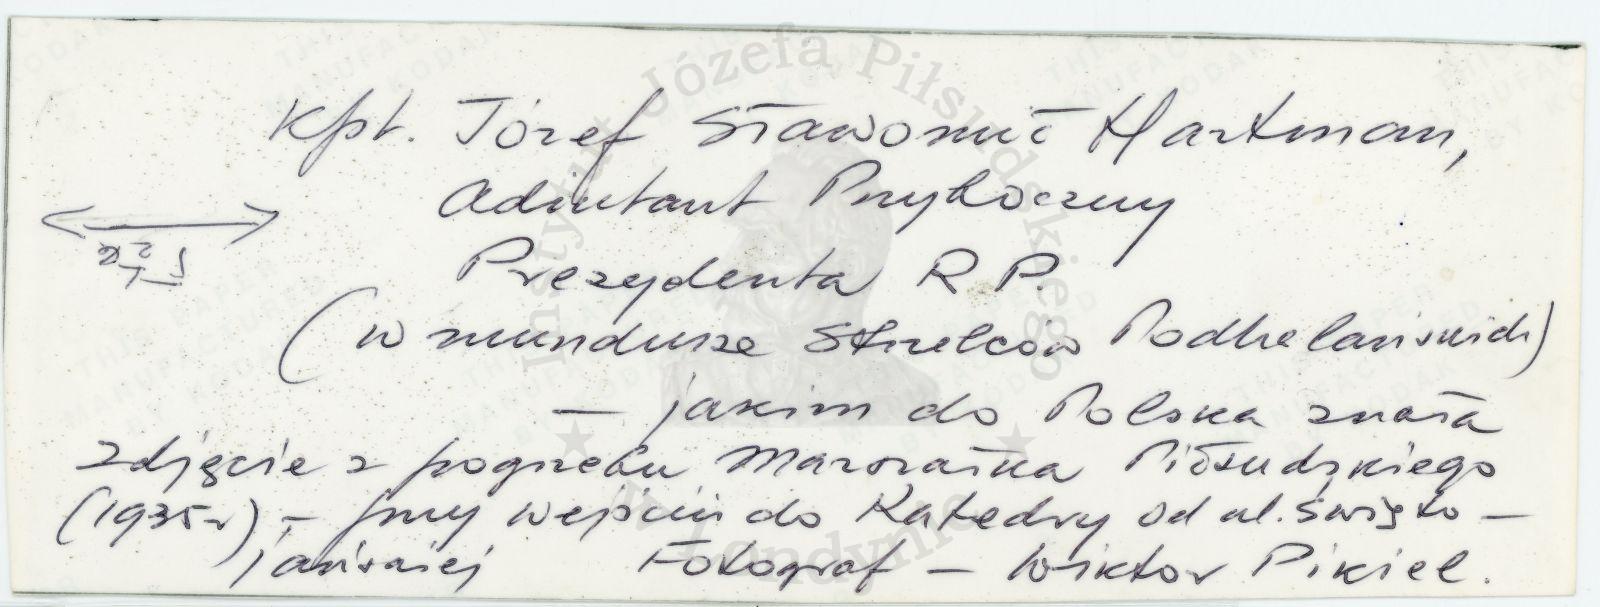 Kpt. Józef Sławomir Hartman,
Adiutant Przyboczny
Prezydenta R.P.
(w mundurze Strzelców Podhalańskich)
— jakim go Polska znała
zdjęcie z pogrzebu Marszałka Piłsudskiego
(1935 r) – przy wejściu do Katedry od ul. święto –
jańskiej Fotograf – Wiktor Pikiel.
Instytut Józefa Piłsudskiego
w Londynie
THIS PAPER
MANUFACTURED
BY KODAK